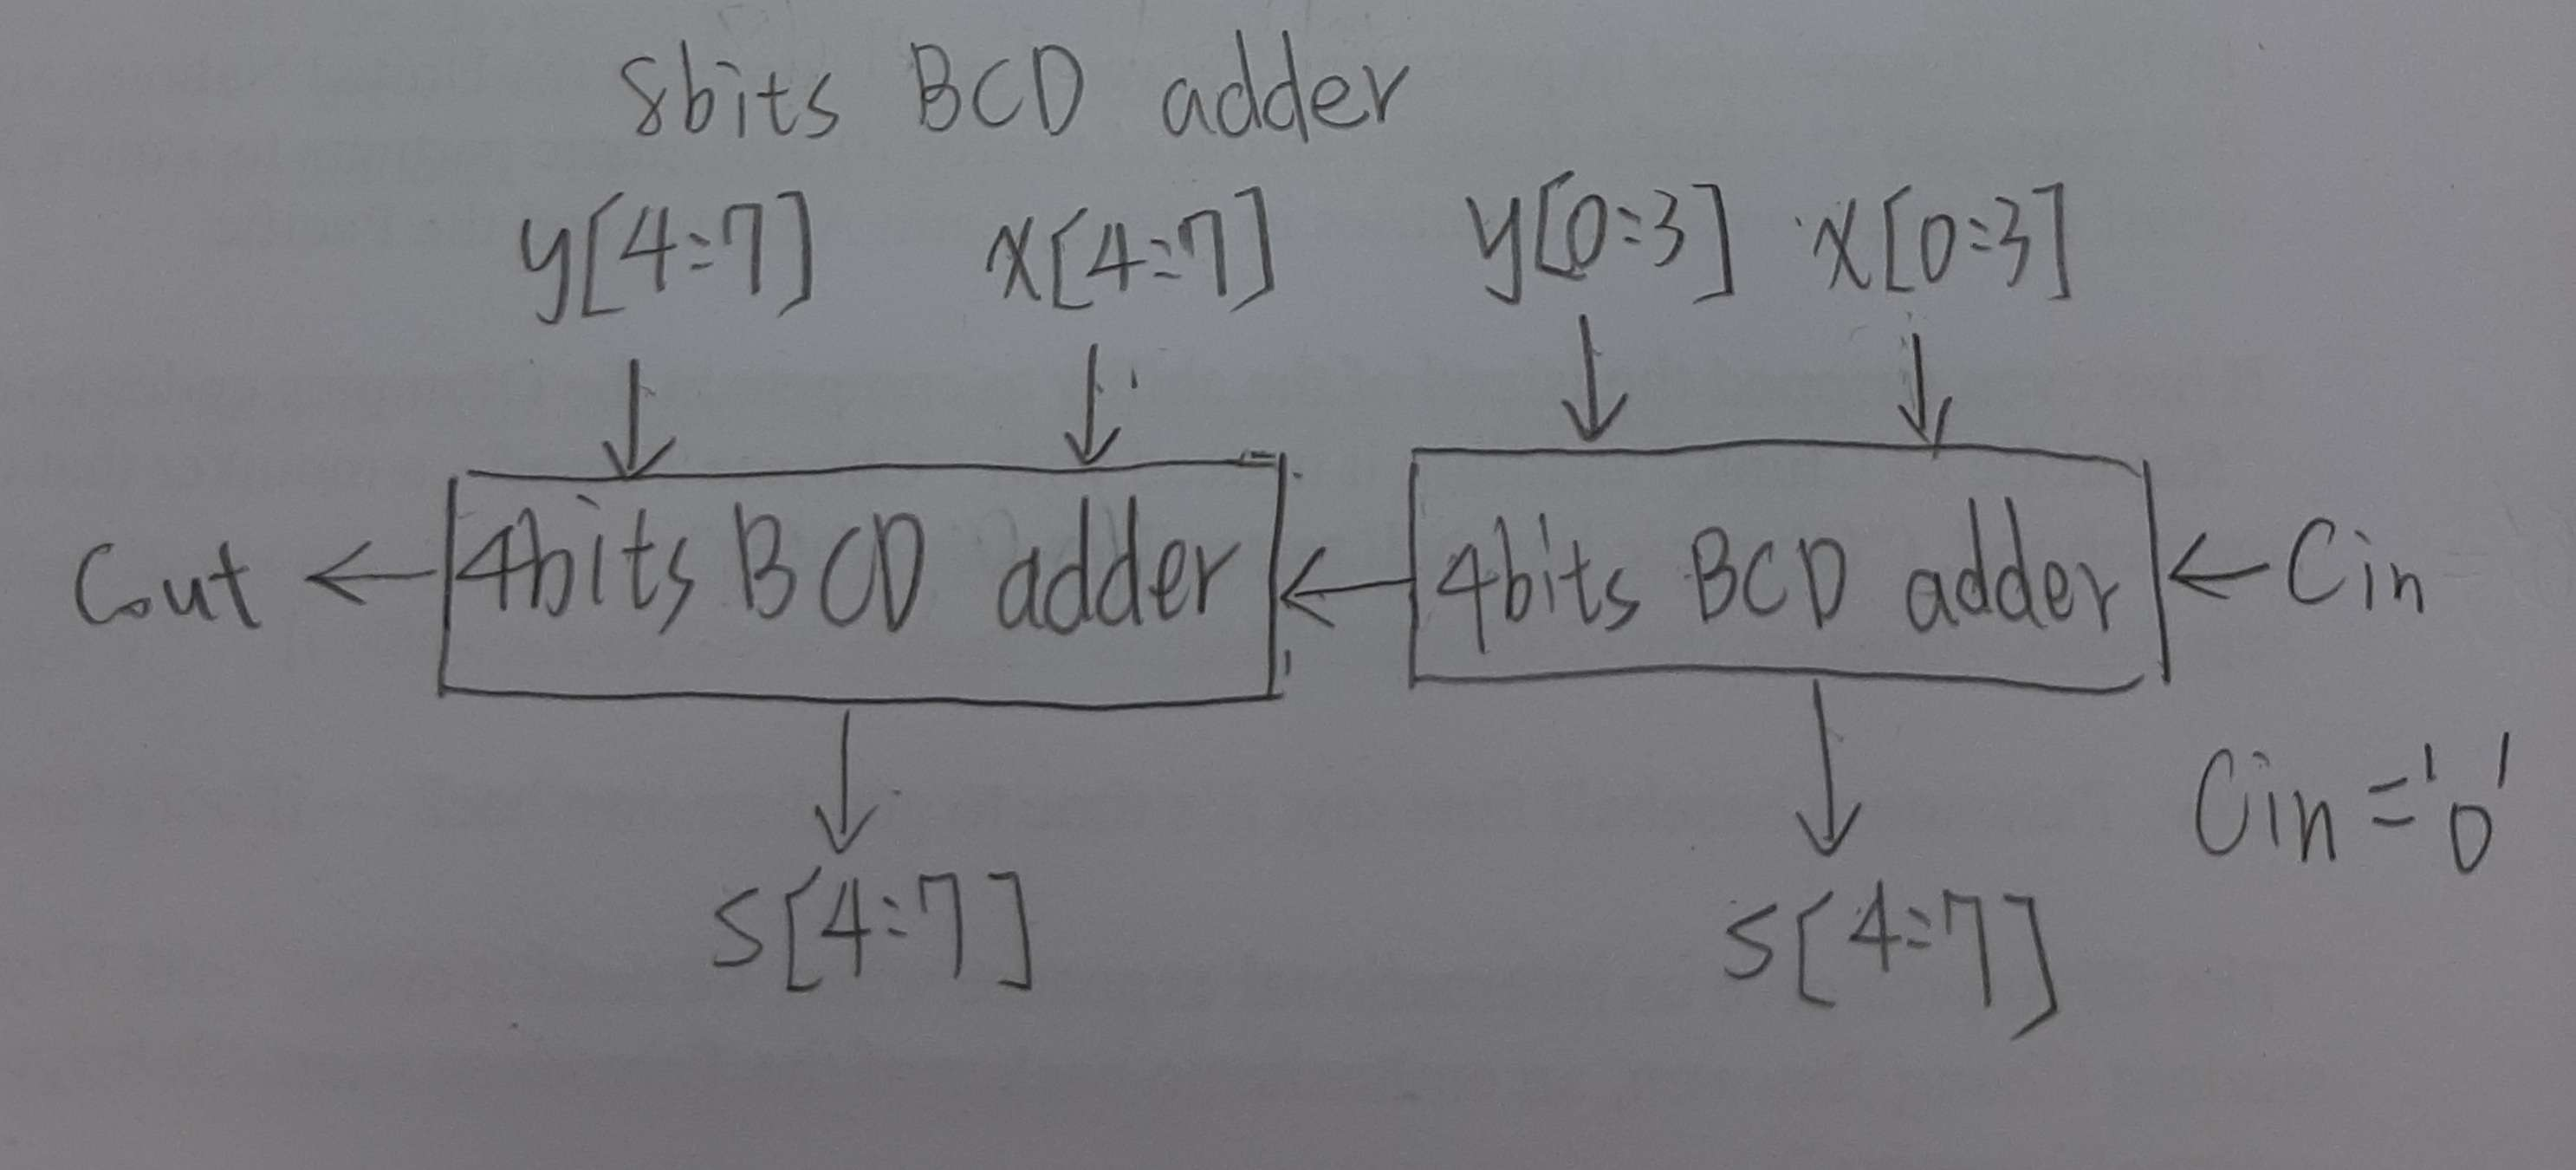 8bits BCD adder
y[4:7] x[4:7] y[0:3] x[0:3]
Cout 4bits BCD adder 4bits BCD adder Cin
Cin='0'
S[4:7] S[4:7]